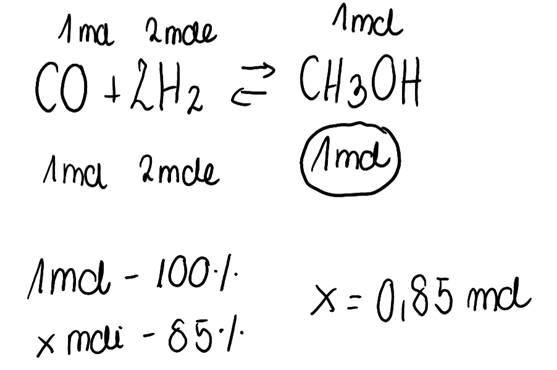 1mol 2mole 1mol
CO + 2H2 ⇄ CH3OH
1mol 2mole 1mol
1mol - 100%
x moli - 85% x = 0,85 mol